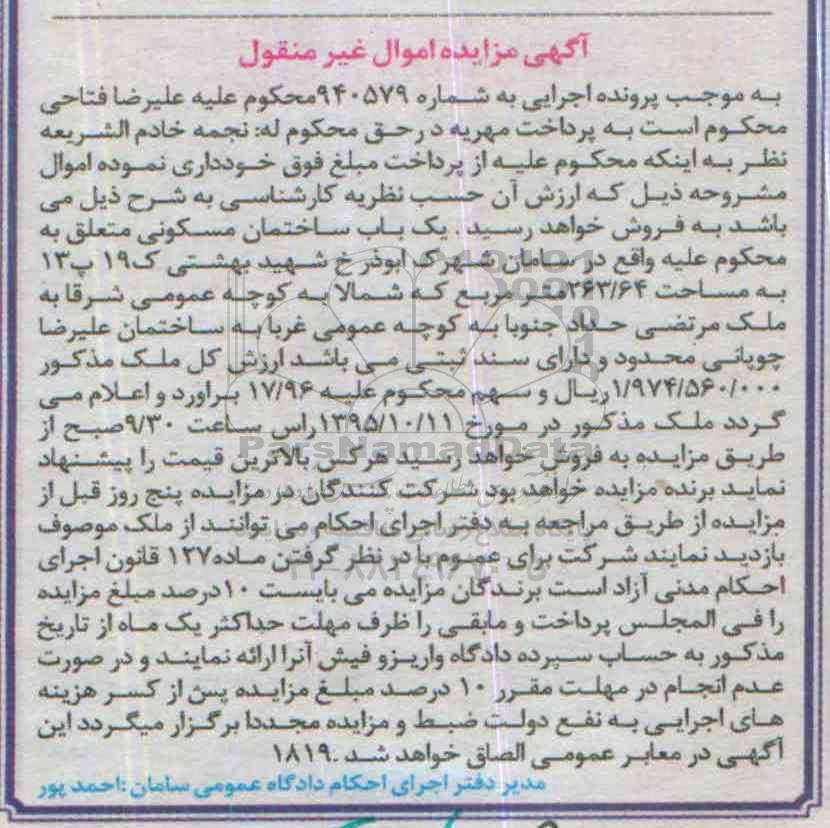 آگهی مزایده اموال غیر منقول
به موجب پرونده اجرایی به شماره ۹۴۰۵۷۹محکوم علیه علیرضا فتاحی
محکوم است به پرداخت مهریه درحق محکوم له: نجمه خادم الشریعه
نظر به اینکه محکوم علیه از پرداخت مبلغ فوق خودداری نموده اموال
مشروحه ذیل که ارزش آن حسب نظریه کارشناسی به شرح ذیل می
باشد به فروش خواهد رسید . یک باب ساختمان مسکونی متعلق به
محکوم علیه واقع در سامان شهرک ابوذر خ شهید بهشتی ک۱۹ پ۱۳
به مساحت ۲۶۳/۶۴متر مربع که شمالا به کوچه عمومی شرقا به
ملک مرتضی حداد جنوبا به کوچه عمومی غربا به ساختمان علیرضا
چوپانی محدود و دارای سند ثبتی می باشد ارزش کل ملک مذکور
۱/۹۷۴/۵۶۰/۰۰۰ریال و سهم محکوم علیه ۱۷/۹۶ براورد و اعلام می
گردد ملک مذکور در مورخ ۱۳۹۵/۱۰/۱۱راس ساعت ۹/۳۰صبح از
طریق مزایده به فروش خواهد رسید هرکس بالاترین قیمت را پیشنهاد
نماید برنده مزایده خواهد بود شرکت کنندگان در مزایده پنج روز قبل از
مزایده از طریق مراجعه به دفتر اجرای احکام می توانند از ملک موصوف
بازدید نمایند شرکت برای عموم با در نظر گرفتن ماده۱۲۷ قانون اجرای
احکام مدنی آزاد است برندگان مزایده می بایست ۱۰درصد مبلغ مزایده
را فی المجلس پرداخت و مابقی را ظرف مهلت حداکثر یک ماه از تاریخ
مذکور به حساب سپرده دادگاه واریزو فیش آنرا ارائه نمایند و در صورت
عدم انجام در مهلت مقرر ۱۰ درصد مبلغ مزایده پس از کسر هزینه
های اجرایی به نفع دولت ضبط و مزایده مجددا برگزار میگردد این
آگهی در معابر عمومی الصاق خواهد شد .۱۸۱۹
مدیر دفتر اجرای احکام دادگاه عمومی سامان :احمد پور
ParsNamadData